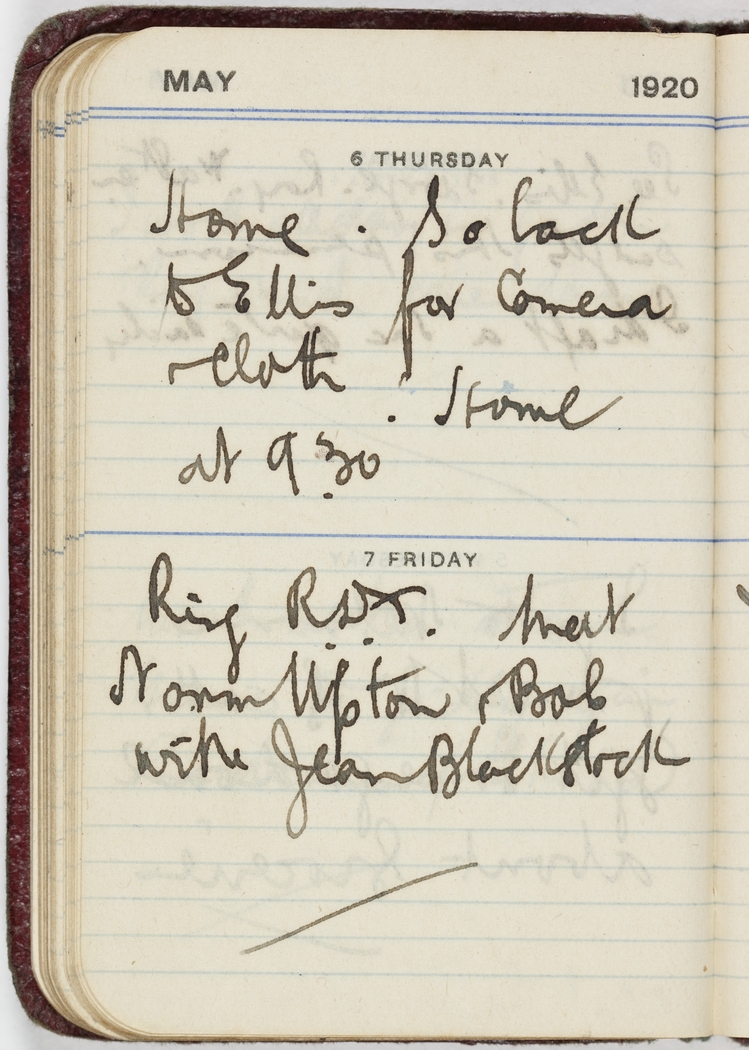 MAY 1920
6 THURSDAY
Home . Go back
to Ellis for Camera
& cloth . Home
at 9.30
7 FRIDAY
Ring R.D.X. Meet
Norm Upton & Bob
with Jean Blackstock